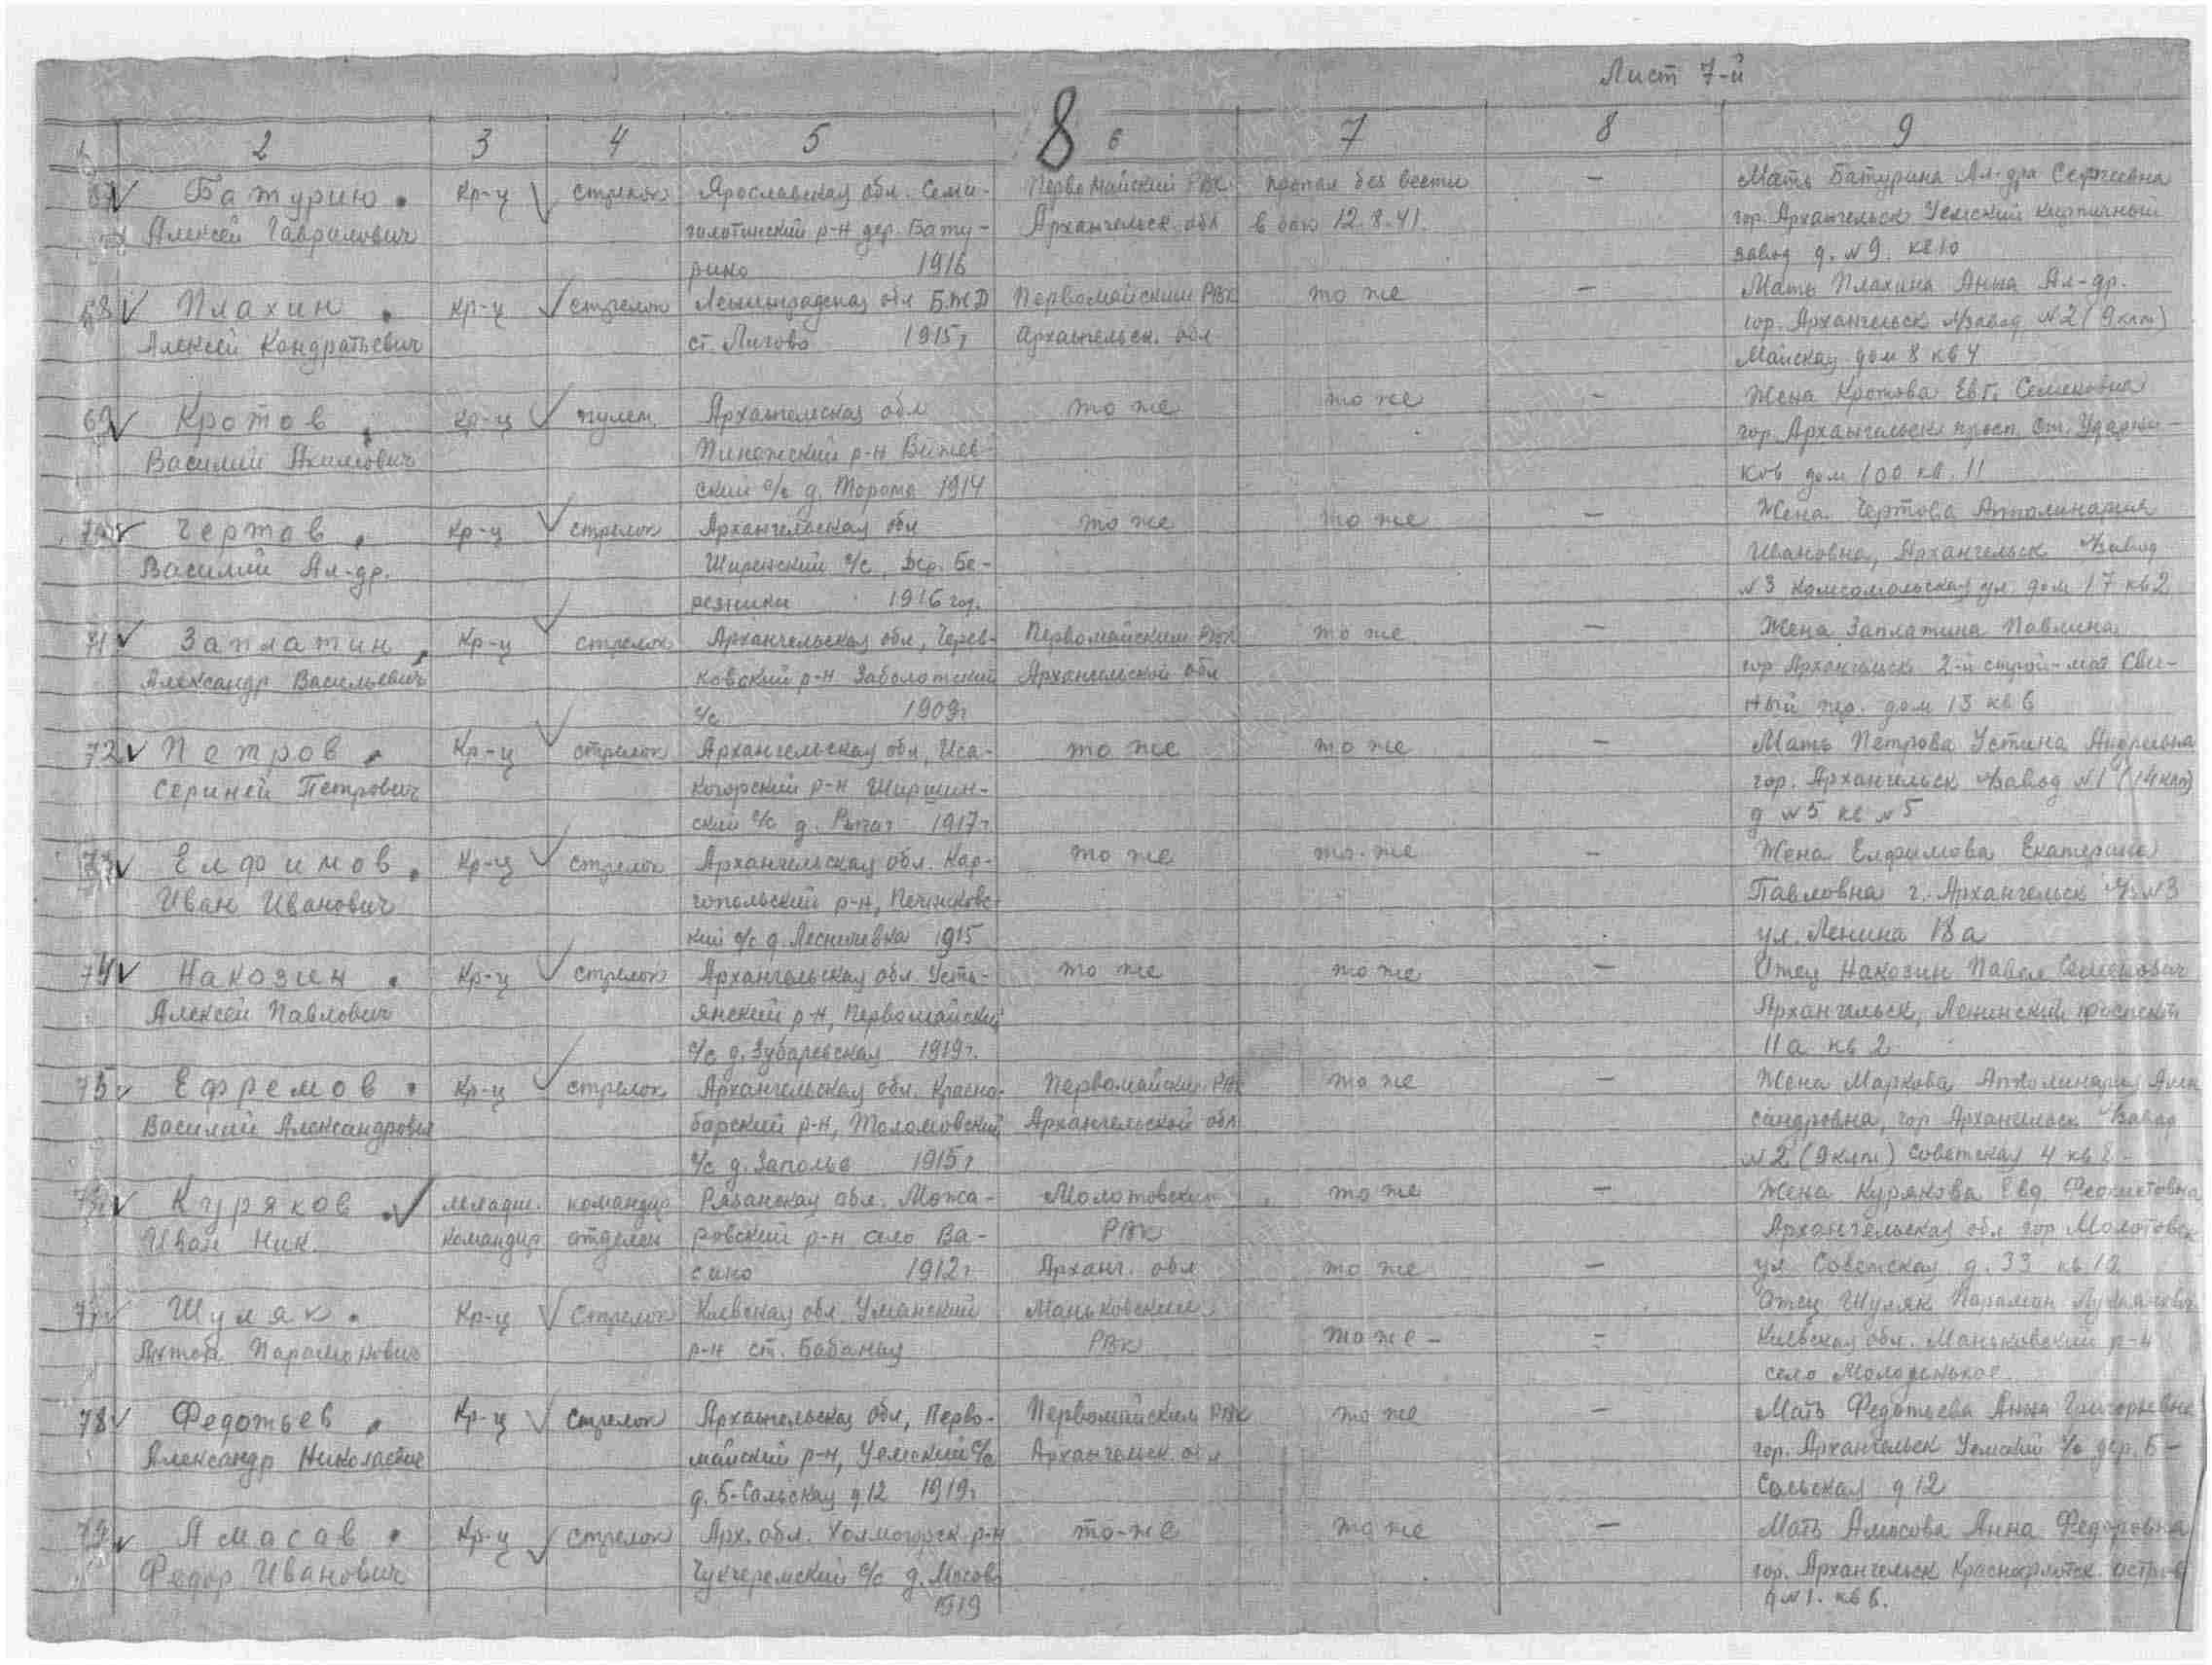 Лист 7-й
8
1 2 3 4 5 6 7 8 9
67 Батурин Кр-ц стрелок Ярославская обл. Семи- Первомайский РВК пропал без вести — Мать Батурина Ал-дра Сергеевна
Алексей Гаврилович гор. Архангельск Уемский кирпичный
Архангельск. обл в бою 12.8.41.
р-н дер. Бату-
рино 1916 завод д. №9. кв 10
68 Плахин Кр-ц стрелок Ленинградская обл БЖД Первомайским РВК то же — Мать Плахина Анна Ал-др.
Алексей Кондратьевич ст. Лигово 1915г Архангельск. обл гор. Архангельск л/завод №2 (9 клт)
Майская дом 8 кв 4
69 Кротов Кр-ц пулем. Архангельская обл то же то же — Жена Кротова Евг. Семеновна
Василий Акимович Пинежский р-н гор. Архангельск просп. Ст. Ударни-
ский с/с д. Торома 1914 ков дом 100 кв. 11
70 Чертов Кр-ц стрелок Архангельская обл то же то же — Жена Чертова Апполинария
Василий Ал-др. с/с, Дер. Бе- Ивановна, Архангельск л/завод
резники 1916 г. №3 Комсомольская ул. дом 17 кв 2
71 Заплатин Кр-ц стрелок Архангельская обл, Черев- Первомайским РВК то же — Жена Заплатина Павлина
Александр Васильевич ковский р-н Заболотский Архангельской обл гор Архангельск 2-й
с/с 1909г пер. дом 13 кв 6
72 Петров Кр-ц стрелок Архангельская обл, Иса- то же то же — Мать Петрова Устина Андреевна
Сергней Петрович когорский р-н Ширшин- гор. Архангельск л/завод №1 (14 клт)
ский с/с д. 1917г д №5 кв №5
73 Елфимов Кр-ц стрелок Архангельская обл. Кар- то же то-же — Жена Елфимова Екатерина
Иван Иванович гопольский р-н, Печниковс- Павловна г. Архангельск л/з №3
кий с/с д. 1915 ул. Ленина 18а
74 Накозин Кр-ц стрелок Архангельская обл. Усть- то же то же — Отец Накозин Павел Семенович
Алексей Павлович янский р-н, Первомайский Архангельск, Ленинский проспект
с/с д. Зубаревская 1919г. 11а кв 2
75 Ефремов Кр-ц стрелок Архангельская обл. Красно- Первомайским РВК то же — Жена Маркова Апполинария Алек
Василий Александрович борский р-н, Толомовский Архангельской обл сандровна, гор Архангельск л/завод
с/с д. Заполье 1915г №2 (9 клт) Советская 4 кв
76 Куряков младш. командир Рязанская обл. Можа- Молотовским то же — Жена Курякова Евд. Феоктистовна
Иван Ник. командир отделен ровский р-н село Ва- РВК Архангельская обл гор Молотовск
сино 1912г Арханг. обл то же — ул Советская д. 33 кв 12
77 Шуляк Кр-ц Стрелок Киевская обл. Уманский Маньковским Отец Шуляк Парамон
Антон Парамонович р-н ст. Бабанка РВК то же — Киевская обл. Маньковский р-н
село Молоденькое
78 Федотьев Кр-ц Стрелок Архангельская обл, Перво- Первомайским РВК то же — Мать Федотьева Анна Григорьевна
Александр Николаевич майский р-н, Уемский с/с Архангельск. обл гор. Архангельск Уемский с/с дер. Б-
д. Б-Сальская д 12 1919г Сальская д 12
79 Амасав Кр-ц стрелок Арх. обл. Холмогорск. р-н то-же то же — Мать Амосова Анна Федоровна
Федор Иванович Чухчеремский с/с д. гор. Архангельск Краснофлотск. остров
1919 д №1. кв 6.